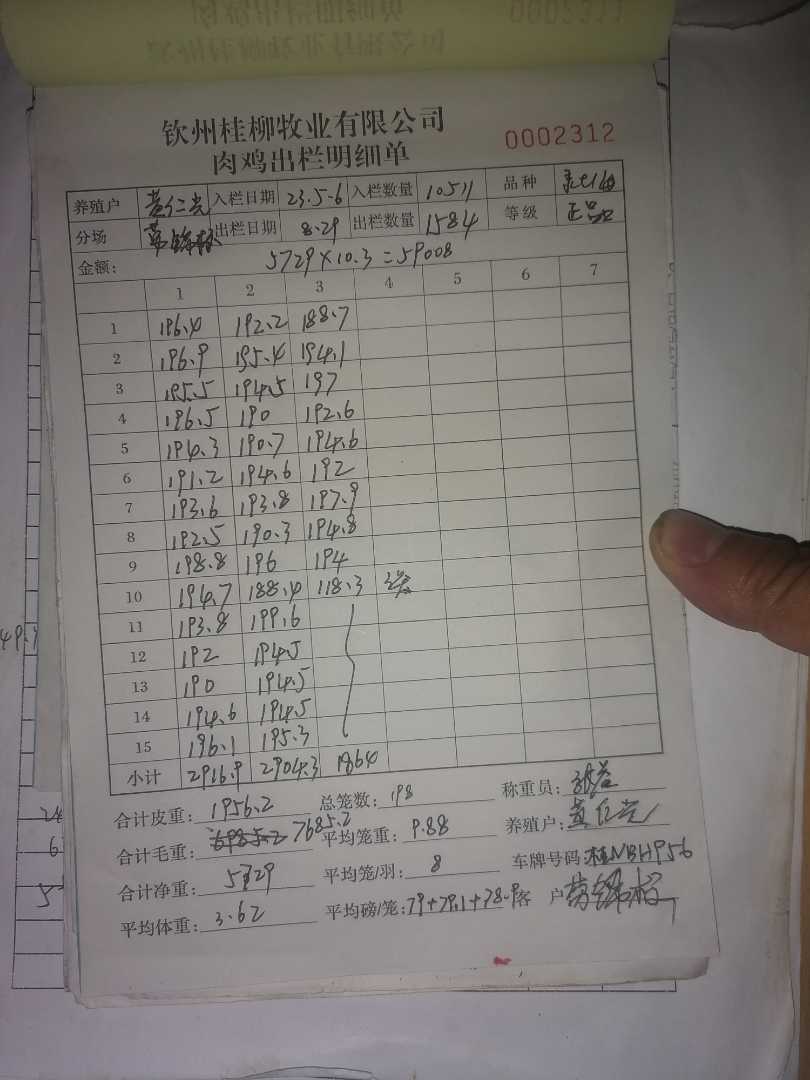 钦州桂柳牧业有限公司
肉鸡出栏明细单
0002312
养殖户 黄仁光 入栏日期 23.5-6 入栏数量 10511 品种
分场 出栏日期 8.29 出栏数量 1584 等级 正品
金额: 5729×10.3=59008
1 2 3 4 5 6 7
1 196.4 192.2 188.7
2 196.9 195.4 194.1
3 195.5 194.5 197
4 196.5 190 192.6
5 194.3 190.7 194.6
6 191.2 194.6 192
7 193.6 193.8 197.9
8 192.5 190.3 194.8
9 198.8 196 194
10 194.7 188.4 118.3
11 193.8 199.6
12 192 194.5
13 190 194.5
14 194.6 194.5
15 196.1 195.3
小计 2916.9 2904.3 1864
合计皮重: 1956.2 总笼数: 198 称重员:
合计毛重: 7685.2 平均笼重: 9.88 养殖户: 黄仁光
合计净重: 5729 平均笼/羽: 8 车牌号码: 桂NBH956
平均体重: 3.62 平均磅/笼: 79+79.1+78.9 客 户